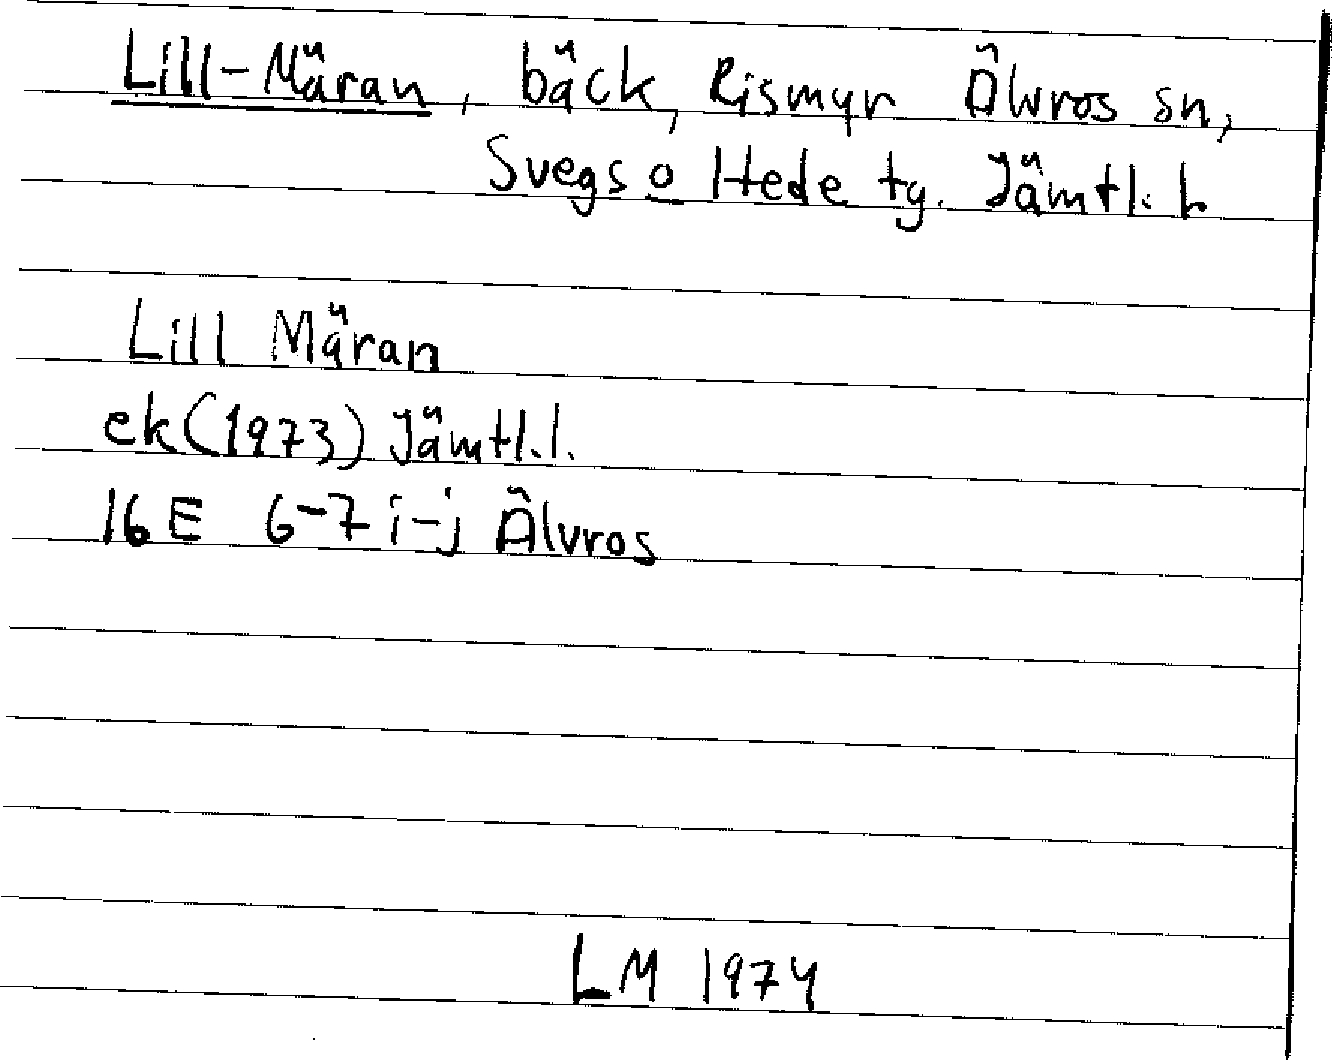 Lill-Märan, bäck, Rismyr Älvros sn,
Svegs o Hede tg. Jämtl. L
Lill Märan
ek (1973) Jämtl.l.
16 E 6-7 i-j Älvros
LM 1974